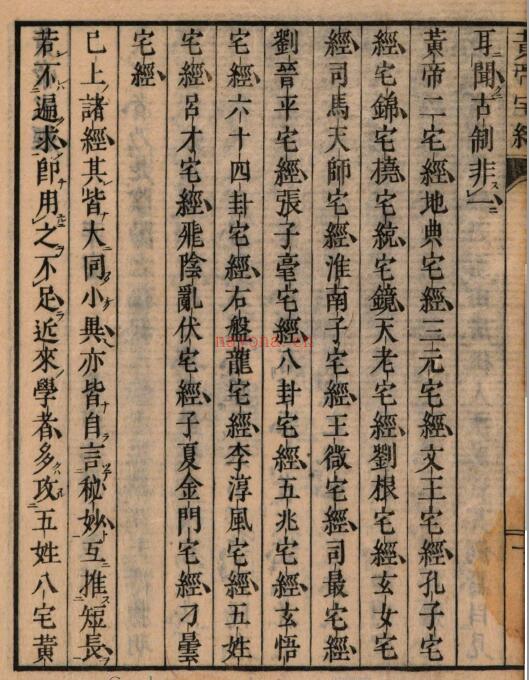 黃帝宅經
耳聞古制非一
黃帝二宅經地典宅經三元宅經文王宅經孔子宅
經宅錦宅橈宅統宅鏡天老宅經劉根宅經玄女宅
經司馬天師宅經淮南子宅經王微宅經司最宅經
劉晉平宅經張子毫宅經八卦宅經五兆宅經玄悟
宅經六十四卦宅經右盤龍宅經李淳風宅經五姓
宅經呂才宅經飛陰亂伏宅經子夏金門宅經刁曇
宅經
已上諸經其皆大同小異亦皆自言秘妙互推短長
若不遍求即用之不足近來學者多攻五姓八宅黃
nayona.cn